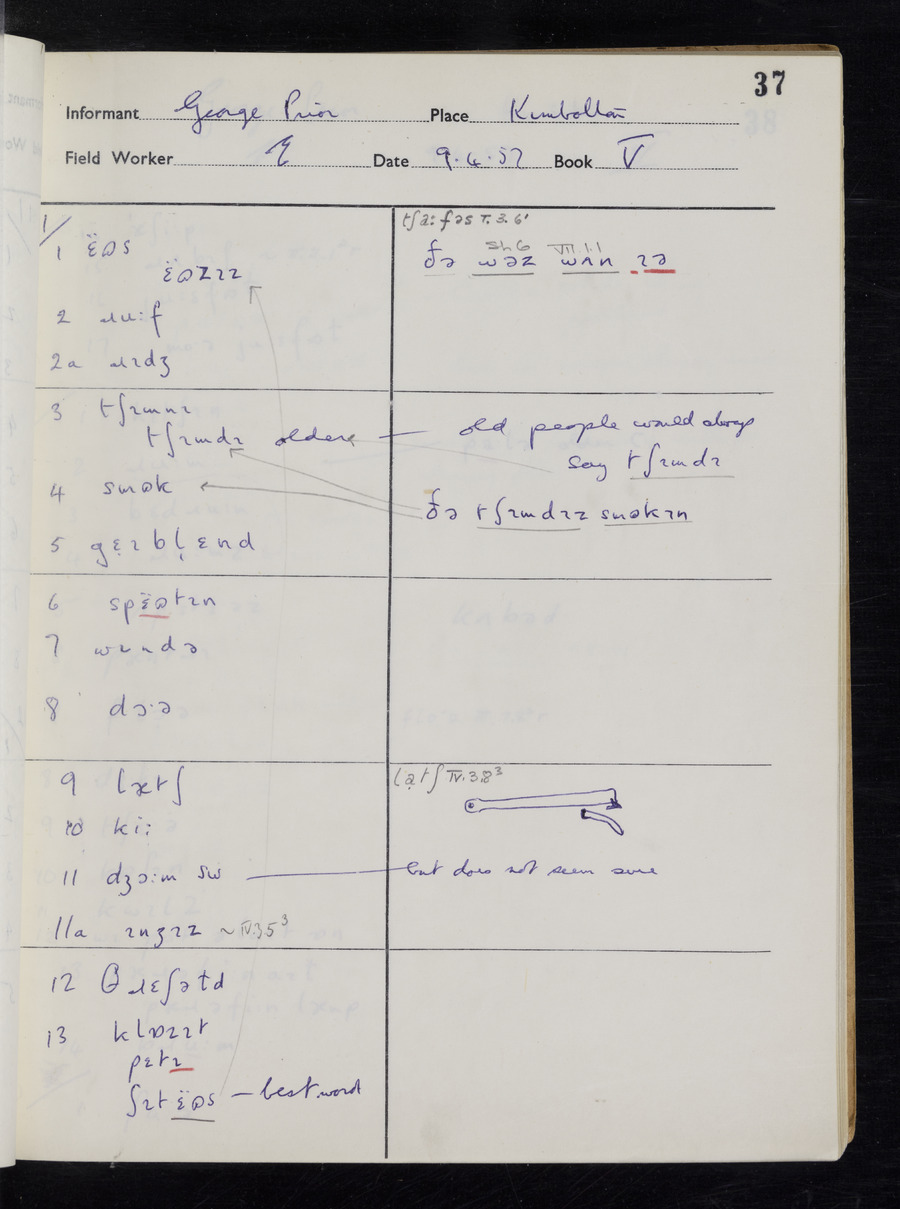 37
Informant George Prior Place Kimbolton
Field Worker Date 9.4.57 Book V
1/
1 ɛ̈ɷs
ɛ̈ɷzɪz
2 ɹu:f
2a ɹɪdʒ
3 tʃɪmnɪ
tʃɪmdɪ older
4 smək
5 gɛɪblɛnd
6 spɛ̈ɷtɪn
7 wɪndə
8 dɔ·ə
9 lætʃ
10 ki:
11 dʒɔ:m sw
11a ɪnʒɪz ~ IV.3.5³
12 θɹɛʃətd
13 klɒzɪt
pɛtɪ
ʃɪtɛ̈ɷs – best word
tʃa: fəs V.3.6'
Sh 6 VII.1.1
ðə wəz wʌn ɪə
old people would always
say tʃɪmdɪ
ðə tʃɪmdɪz sməkɪn
latʃ IV.3.8³
but does not seem sure